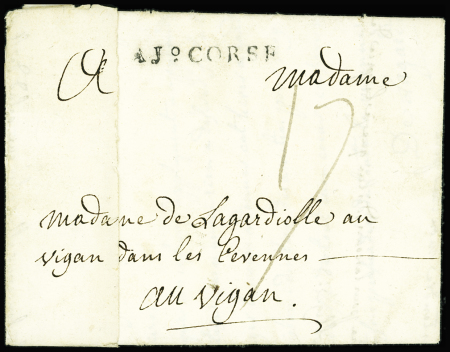 A AJº CORSE
Madame
17
Madame de Lagardiolle au
vigan dans les Cevennes
au vigan.